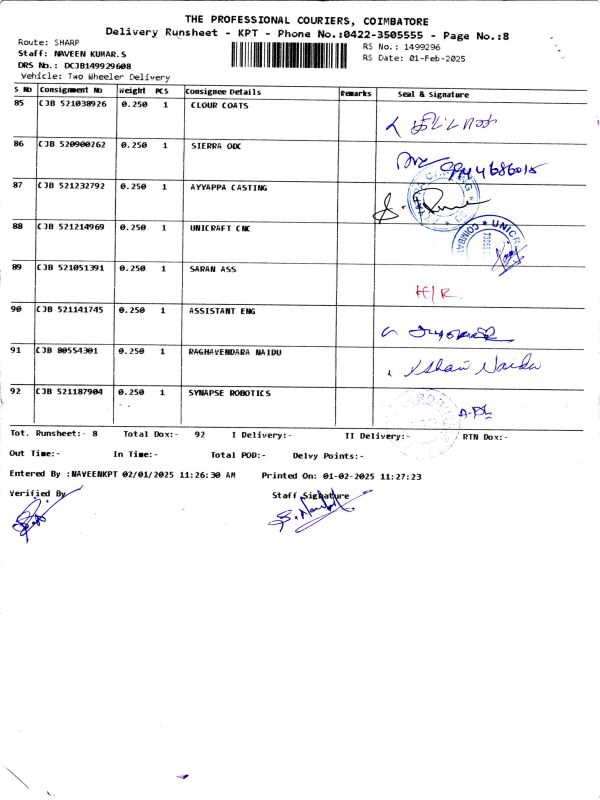 THE PROFESSIONAL COURIERS, COIMBATORE
Delivery Runsheet - KPT - Phone No.:0422-3505555 - Page No.:8
Route: SHARP
RS No.: 1499296
Staff: NAVEEN KUMAR.S
RS Date: 01-Feb-2025
DRS No.: DCJB149929608
Vehicle: Two Wheeler Delivery
S No Consignment No Weight PCS Consignee Details Remarks Seal & Signature
85 CJB 521038926 0.250 1 CLOUR COATS
86 CJB 520900262 0.250 1 SIERRA ODC
87 CJB 521232792 0.250 1 AYYAPPA CASTING
88 CJB 521214969 0.250 1 UNICRAFT CNC
89 CJB 521051391 0.250 1 SARAN ASS
H/R
90 CJB 521141745 0.250 1 ASSISTANT ENG
91 CJB 80554301 0.250 1 RAGHAVENDARA NAIDU
Naidu
92 CJB 521187904 0.250 1 SYNAPSE ROBOTICS
Tot. Runsheet:- 8 Total Dox:- 92 I Delivery:- II Delivery:- RTN Dox:-
Out Time:- In Time:- Total POD:- Delvy Points:-
Entered By :NAVEENKPT 02/01/2025 11:26:30 AM Printed On: 01-02-2025 11:27:23
Verified By Staff Signature